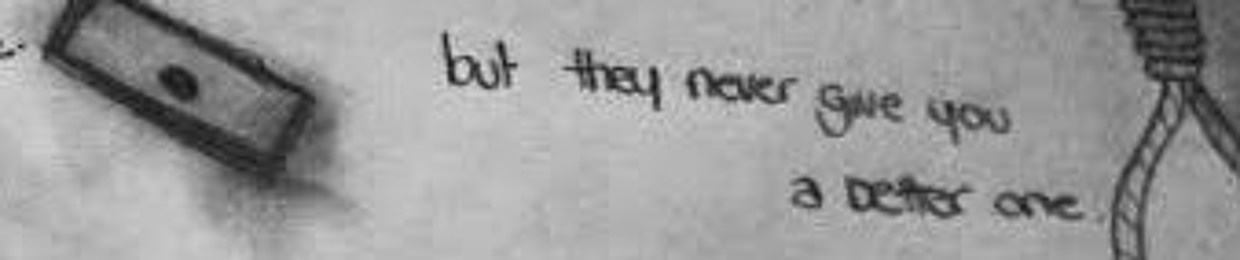 but they never give you
a better one